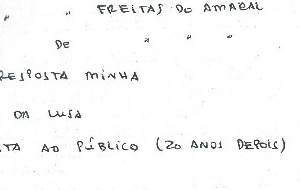 " " FREITAS DO AMARAL
DE " " "
RESPOSTA MINHA
DA LUSA
TA AO PÚBLICO (20 ANOS DEPOIS)